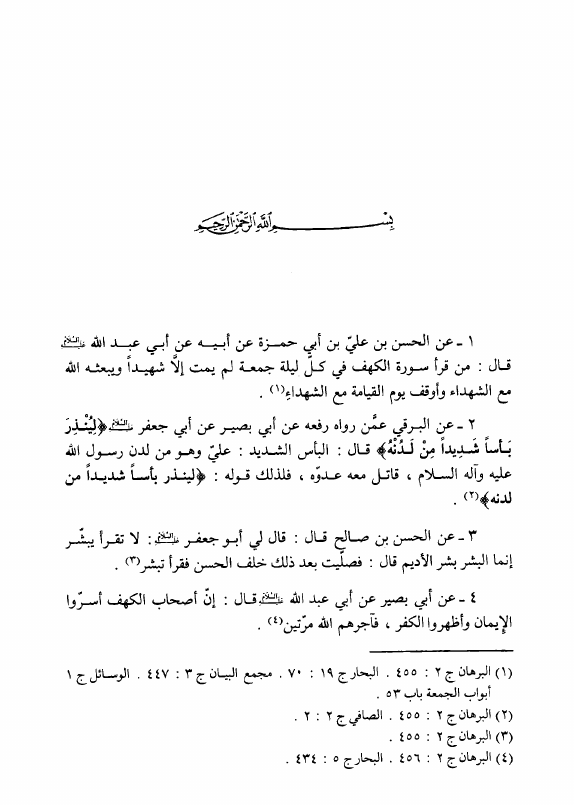 بسم الله الرحمن الرحيم
١ ـ عن الحسن بن عليّ بن أبي حمـزة عن أبيـه عن أبـي عبـد الله عليه السلام
قـال : من قرأ سـورة الكهف في كـلّ ليلة جمعـة لم يمت إلَّا شهيـداً ويبعثـه الله
مع الشهداء وأوقف يوم القيامة مع الشهداءِ(١) .
٢ ـ عن البـرقي عمَّن رواه رفعه عن أبي بصيـر عن أبي جعفر عليه السلام ﴿لِيُنْذِرَ
بَـأساً شَـدِيداً مِنْ لَـدُنْهُ﴾ قـال : البأس الشديـد : عليّ وهـو من لدن رسـول الله
عليه وآله السـلام ، قاتـل معه عـدوّه ، فلذلك قـوله : ﴿لينـذر بأسـاً شديـداً من
لدنه﴾(٢) .
٣ ـ عن الحسن بن صـالح قـال : قال لي أبـو جعفـر عليه السلام : لا تقـرأ يبشّـر
إنما البشر بشر الأديم قال : فصلّيت بعد ذلك خلف الحسن فقرأ تبشر(٣) .
٤ ـ عن أبي بصير عن أبي عبد الله عليه السلام قـال : إنّ أصحاب الكهف أسـرّوا
الإِيمان وأظهروا الكفر ، فآجرهم الله مرّتين(٤) .
(١) البرهان ج ٢ : ٤٥٥ . البحار ج ١٩ : ٧٠ . مجمع البيـان ج ٣ : ٤٤٧ . الوسـائل ج ١
أبواب الجمعة باب ٥٣ .
(٢) البرهان ج ٢ : ٤٥٥ . الصافي ج ٢ : ٢ .
(٣) البرهان ج ٢ : ٤٥٥ .
(٤) البرهان ج ٢ : ٤٥٦ . البحار ج ٥ : ٤٣٤ .